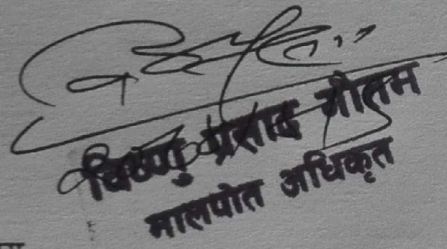 विष्णु प्रसाद गौतम
मालपोत अधिकृत